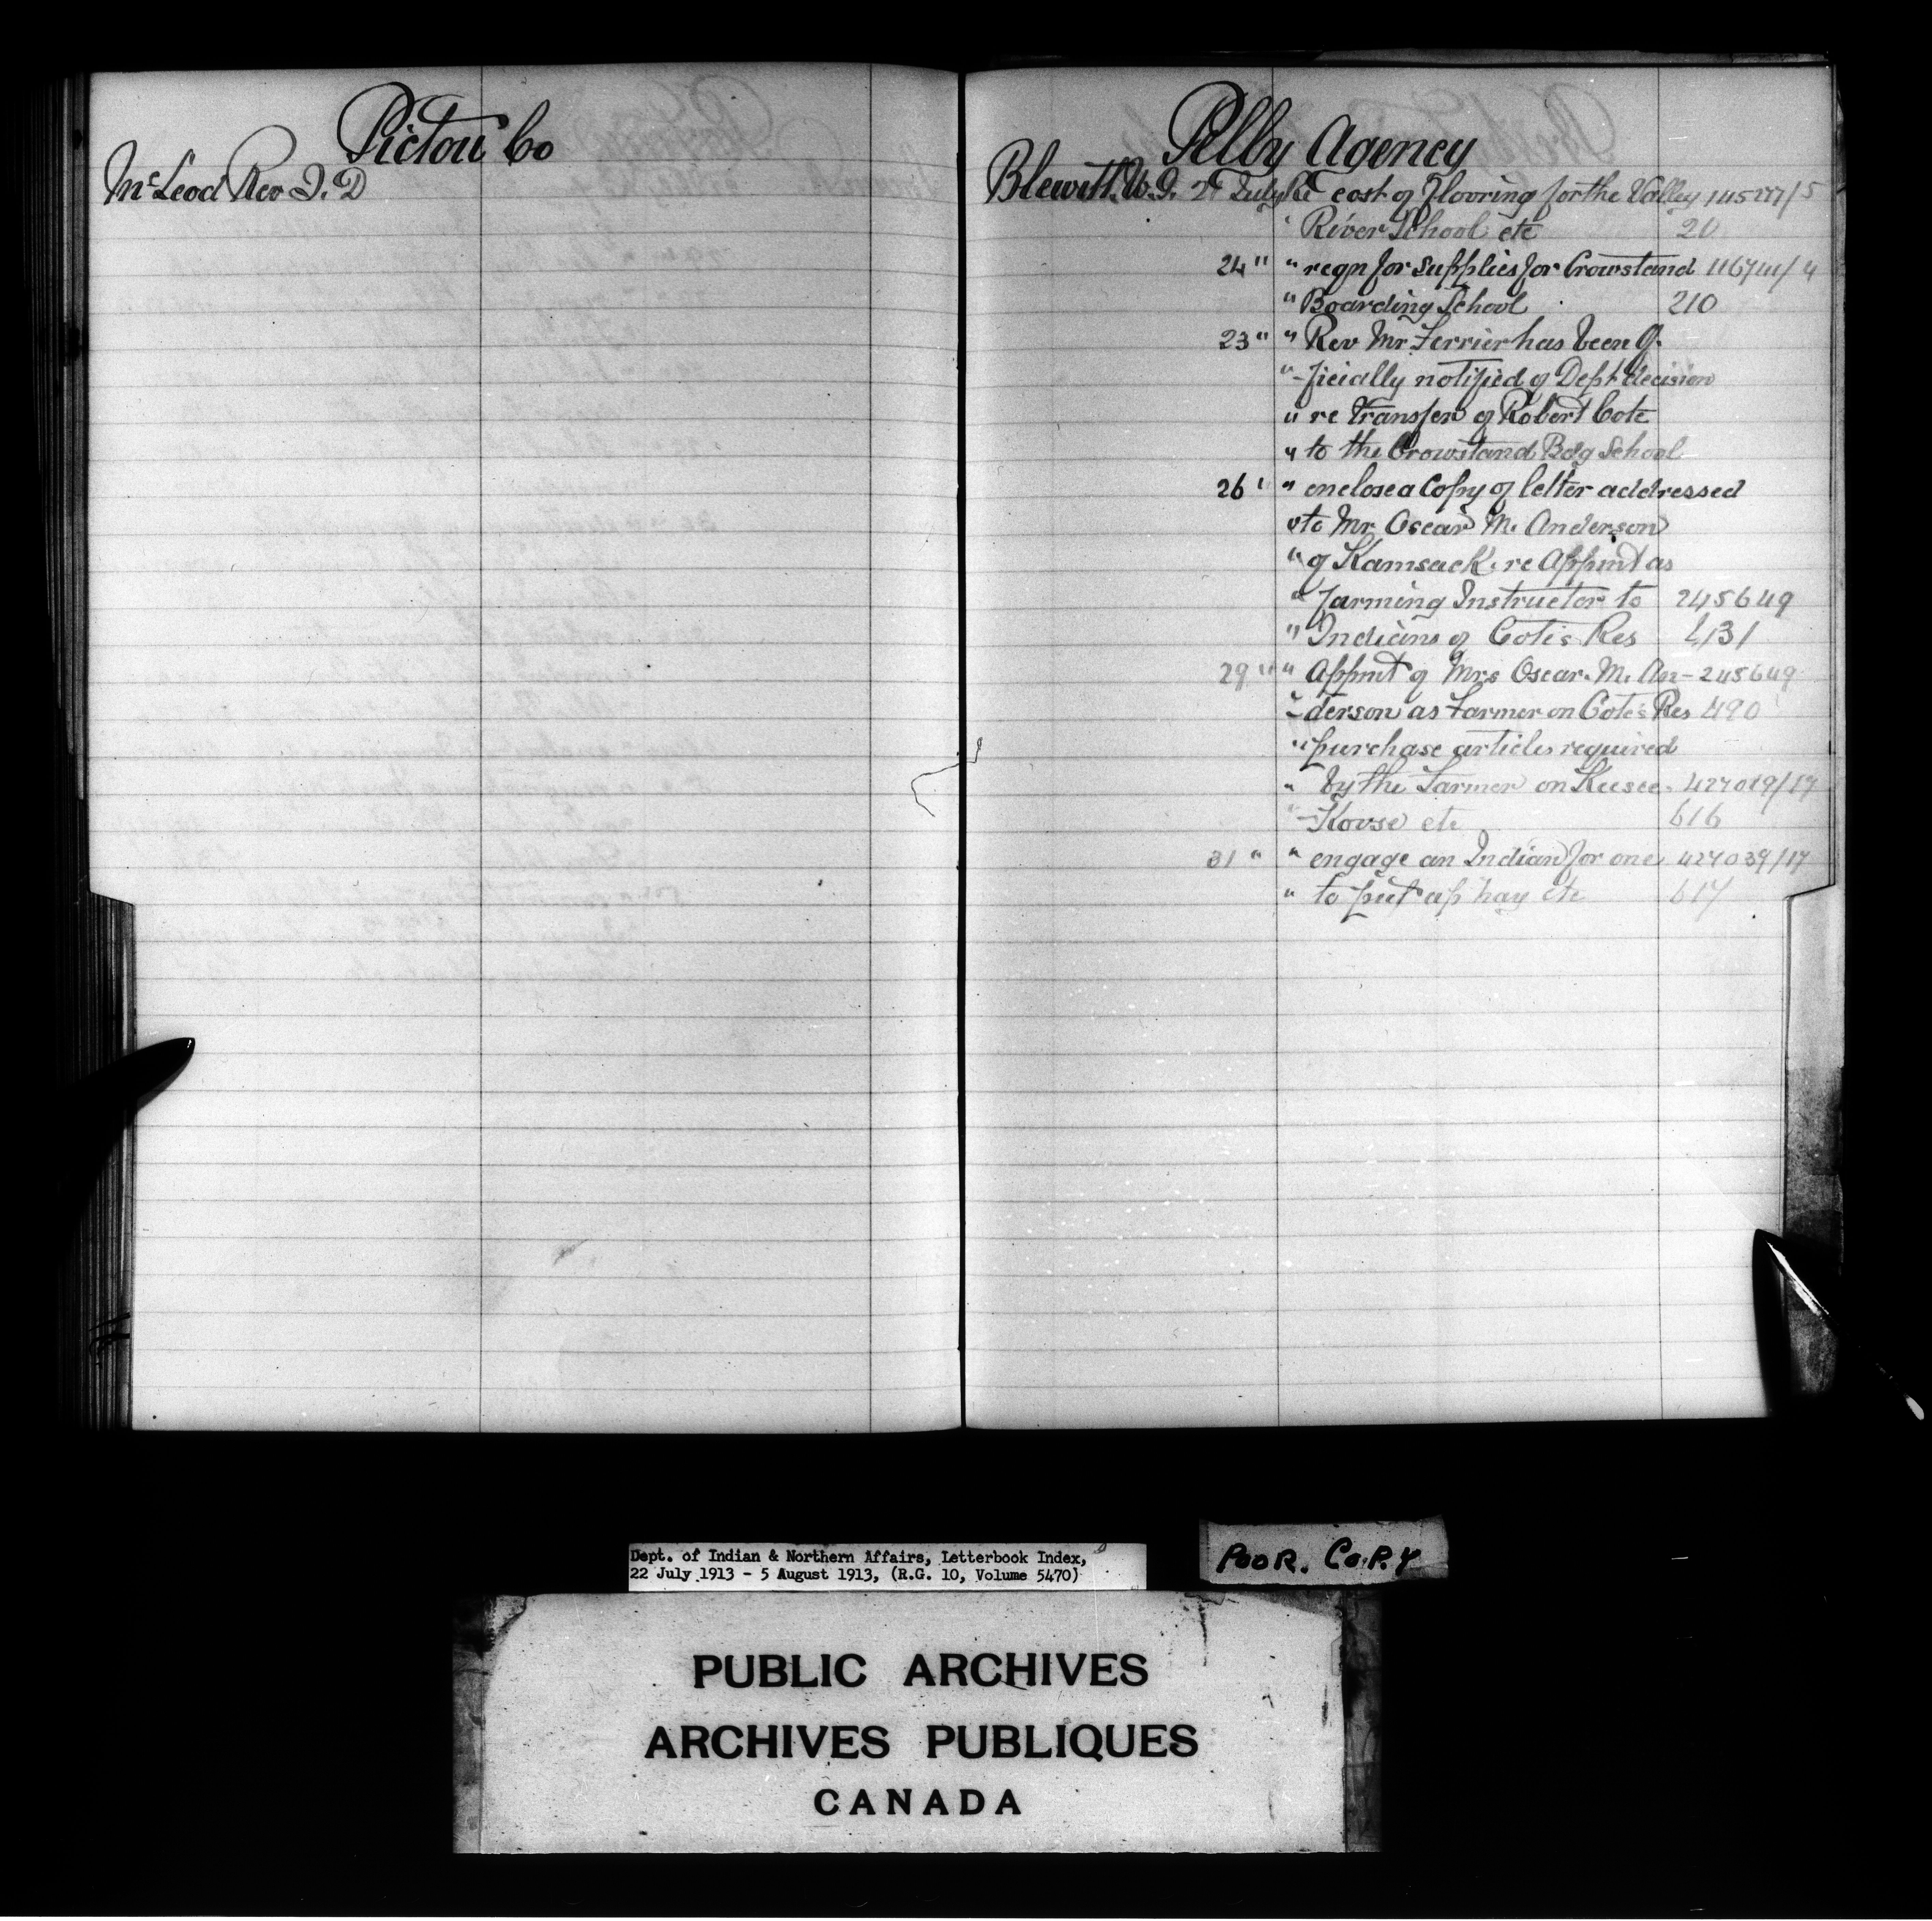 Pictou Co
McLeod Rev J. D
Pelly Agency
Blewitt. W. G. 21 July Re cost of Flooring for the Valley 114527/5
" River School etc 20
24 " " reqn for supplies for Crowstand 116711/4
" Boarding School 210
23 " " Rev Mr Ferrier has been of-
" -ficially notified of Dept decision
" re transfer of Robert Cote
" to the Crowstand Bdg School
26 " " enclose a Copy of letter addressed
" to Mr Oscar M. Anderson
" of Kamsack. re Appmt as
" Farming Instructor to 245649
" Indians of Cote's Res 431
29 " " Appmt of Mrs Oscar. M. An- 245649
" -derson as Farmer on Cote's Res 490
" purchase articles required
" by the Farmer on Keesee- 427019/17
" -Kovse etc 616
31 " " engage an Indian for one 427039/17
" to put up hay etc 617
Dept. of Indian & Northern Affairs, Letterbook Index,
22 July 1913 - 5 August 1913, (R.G. 10, Volume 5470)
POOR. COPY
PUBLIC ARCHIVES
ARCHIVES PUBLIQUES
CANADA